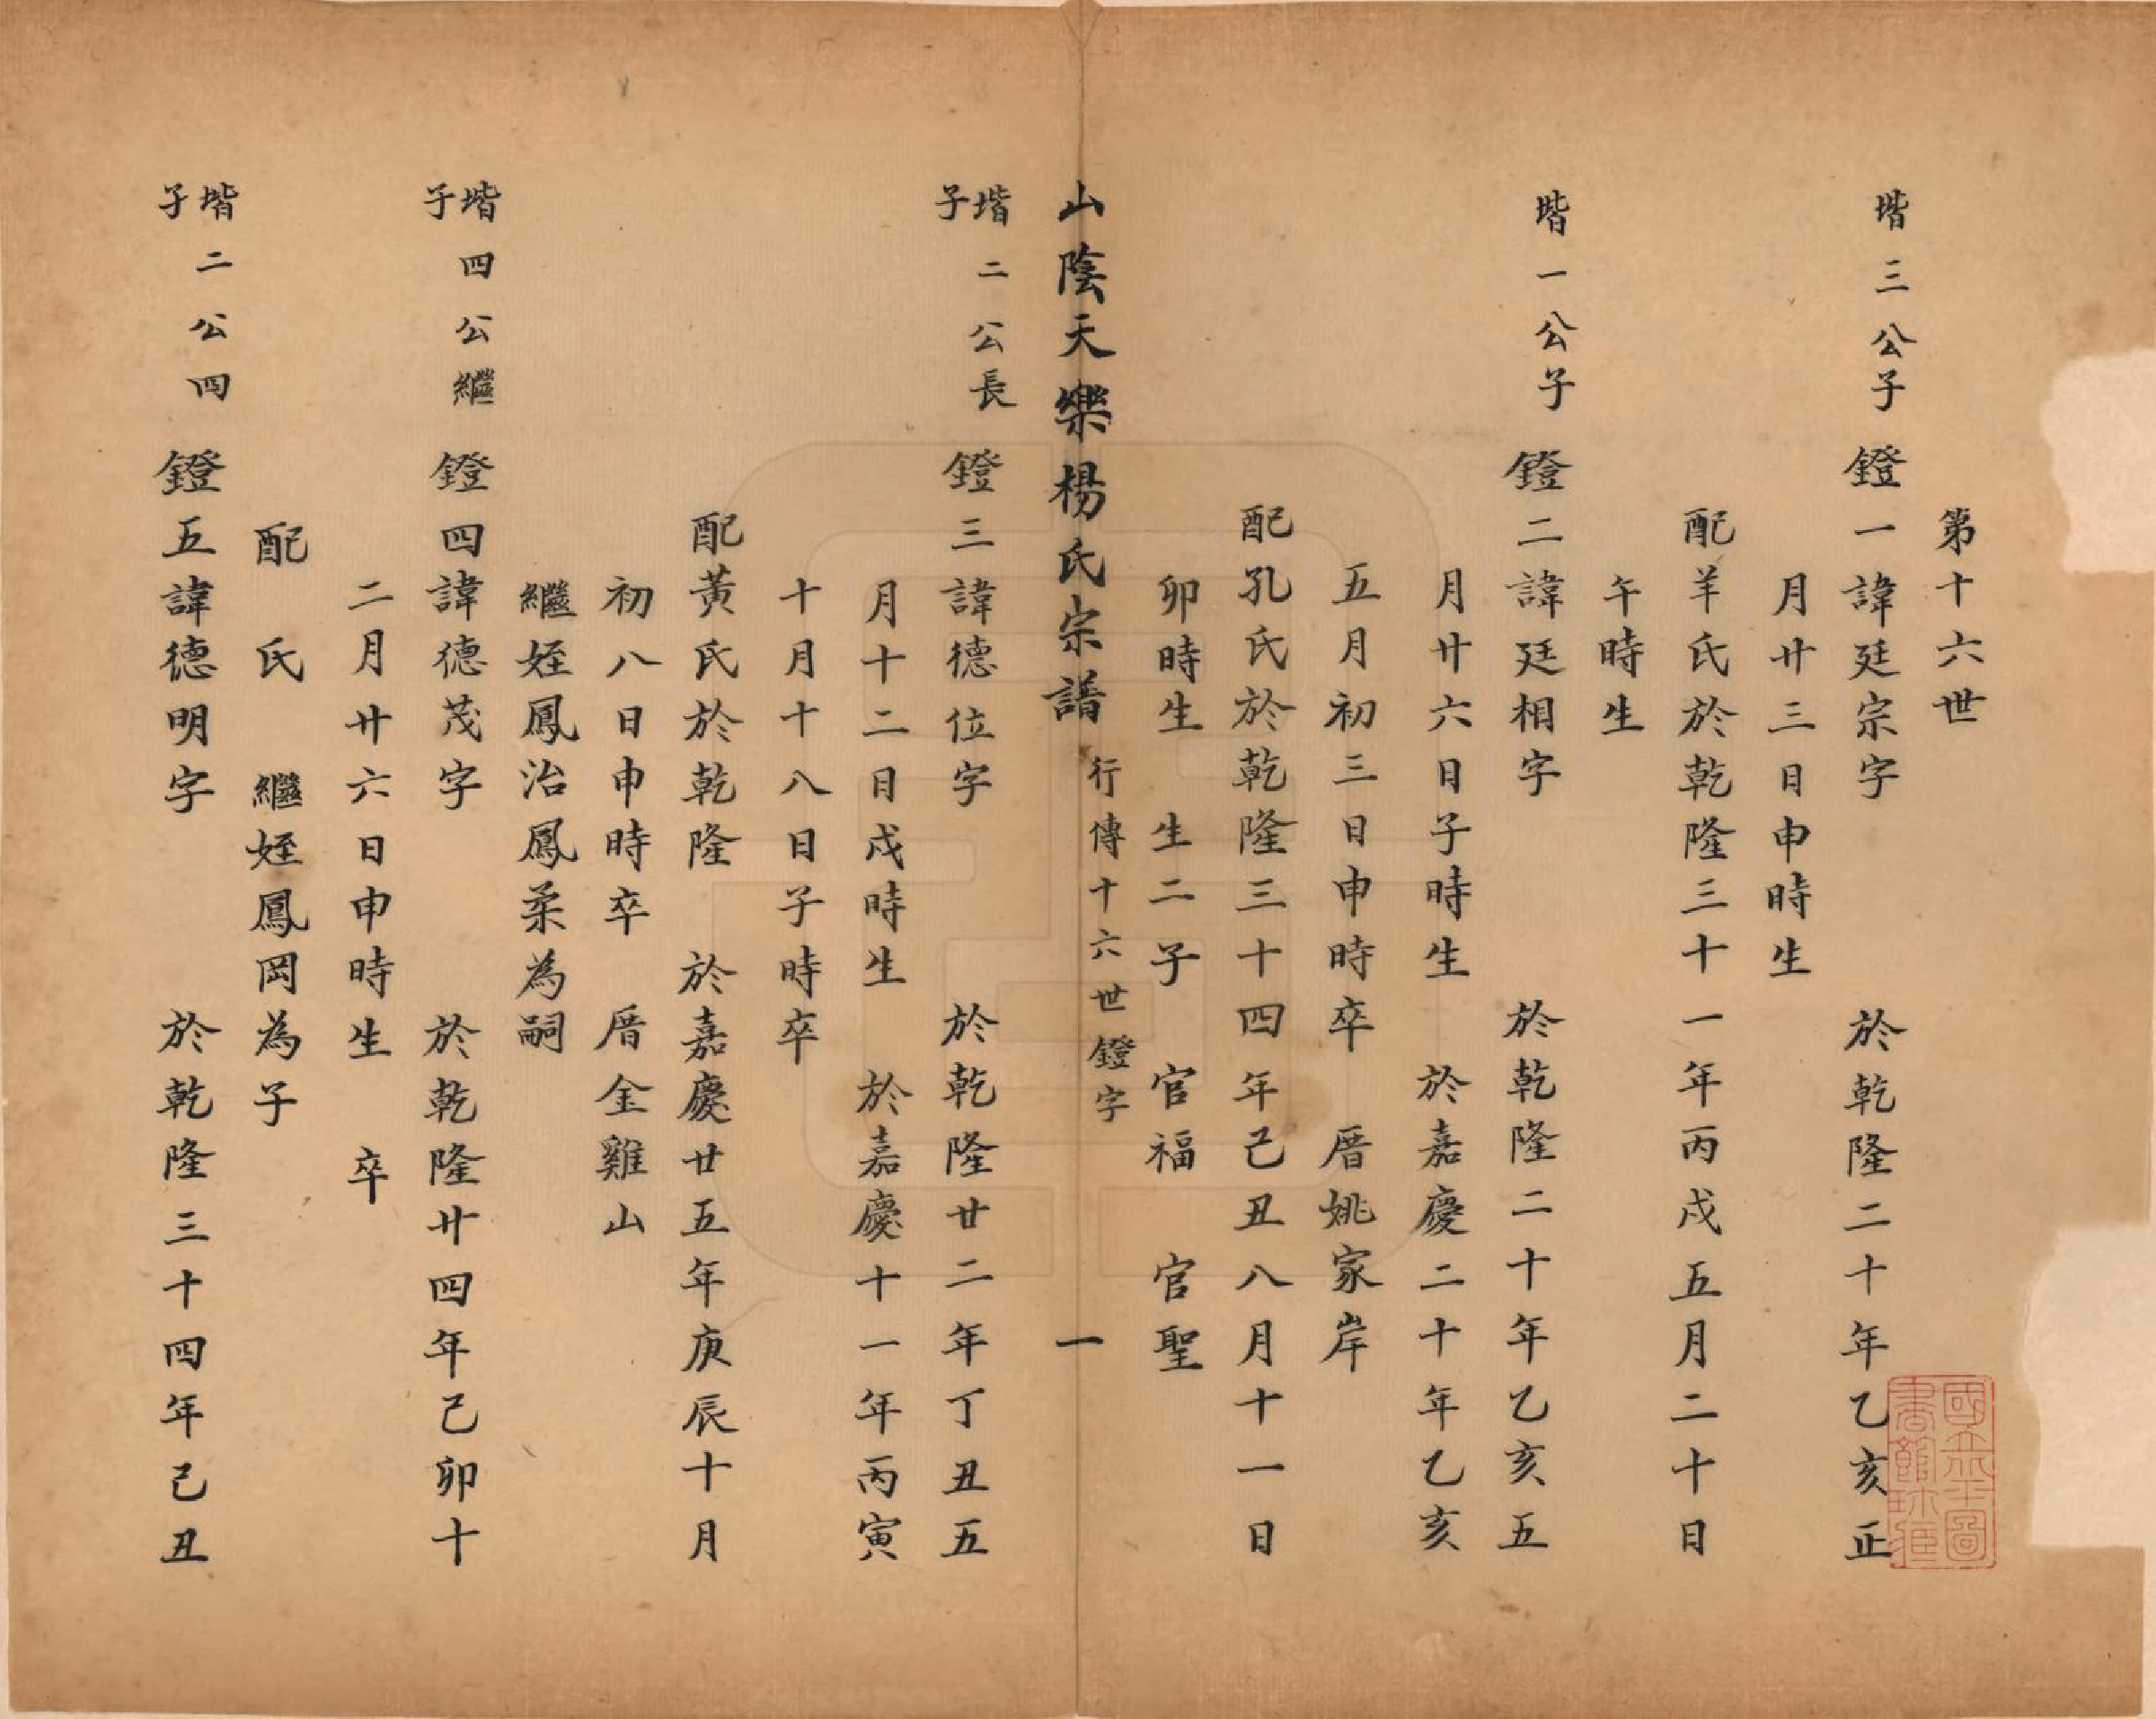 第十六世
堦三公子 鐙一諱廷宗字 於乾隆二十年乙亥正
月廿三日申時生
配羊氏於乾隆三十一年丙戌五月二十日
午時生
堦一公子 鐙二諱廷相字 於乾隆二十年乙亥五
月廿六日子時生 於嘉慶二十年乙亥
五月初三日申時卒 厝姚家岸
配孔氏於乾隆三十四年己丑八月十一日
卯時生 生二子 官福 官聖
山陰天樂楊氏宗譜 行傳十六世鐙字 一
堦二公長子 鐙三諱德位字 於乾隆廿二年丁丑五
月十二日戌時生 於嘉慶十一年丙寅
十月十八日子時卒
配黃氏於乾隆 於嘉慶廿五年庚辰十月
初八日申時卒 厝金雞山
繼姪鳳治鳳柔為嗣
堦四公繼子 鐙四諱德茂字 於乾隆廿四年己卯十
二月廿六日申時生 卒
配 氏 繼姪鳳岡為子
堦二公四子 鐙五諱德明字 於乾隆三十四年己丑
國立北平圖書館珍藏